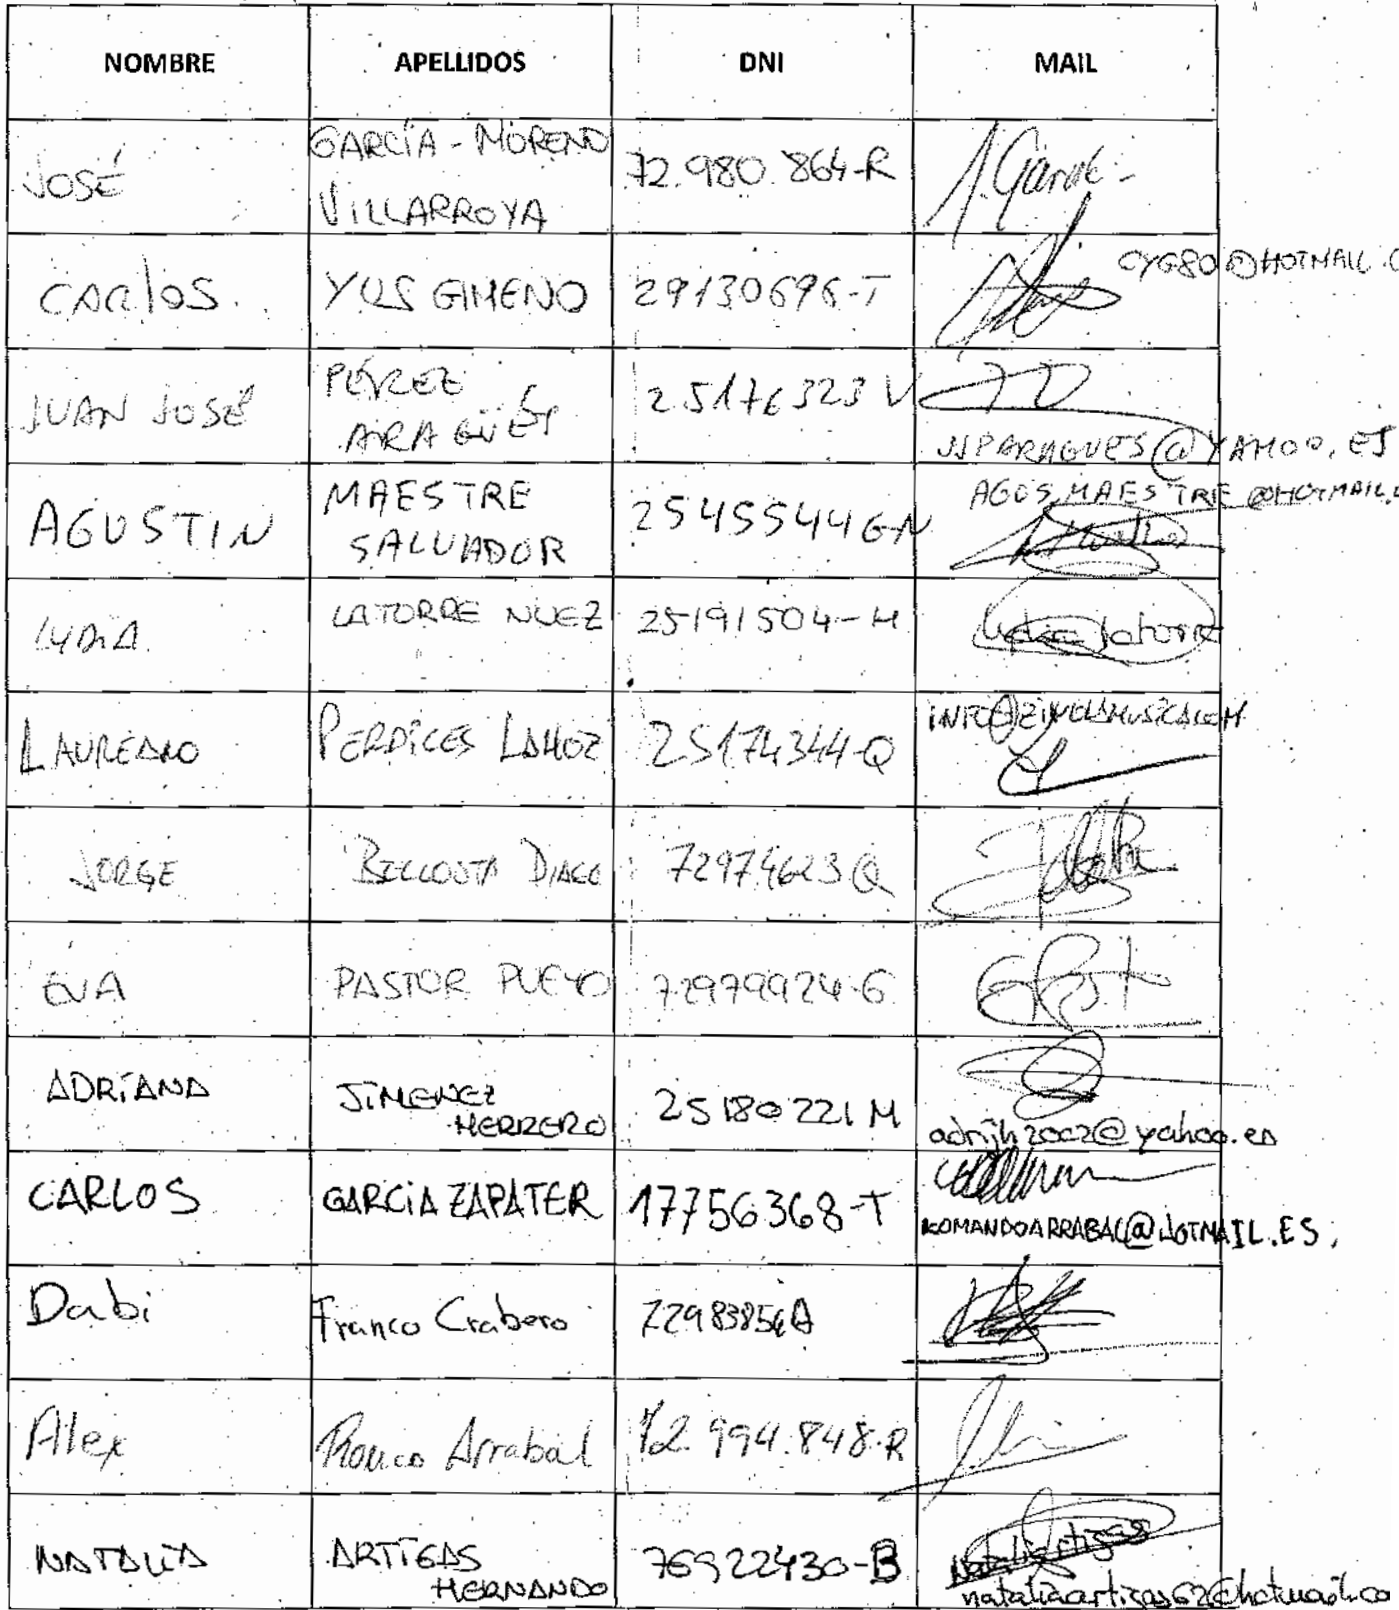 NOMBRE APELLIDOS DNI MAIL
JOSÉ GARCÍA-MORENO VILLARROYA 72.980.864-R
CARLOS YUS GIMENO 29130696-T CYG80@HOTMAIL.C
JUAN JOSÉ PÉREZ ARAGÜÉS 25176323 V JJPARAGUES@YAHOO.ES
AGUSTIN MAESTRE SALVADOR 25455446-N AGUS_MAESTRE@HOTMAIL.C
LYDIA LATORRE NUEZ 25191504-H Lydia Latorre
LAUREANO PERDICES LAHOZ 25174344-Q
JORGE BELLOSTA DIAGO 72974623Q
EVA PASTOR PUEYO 72979924-G
ADRIANA JIMENEZ HERRERO 25180221 M adrijh2002@yahoo.es
CARLOS GARCÍA ZAPATER 17756368-T KOMANDOARRABAL@HOTMAIL.ES
Dabi Franco Crabero 72983854A
Alex Arrabal 72.994.848-R
NATALIA ARTIGAS HERNANDO 76922430-B nataliaartigas62@hotmail.co